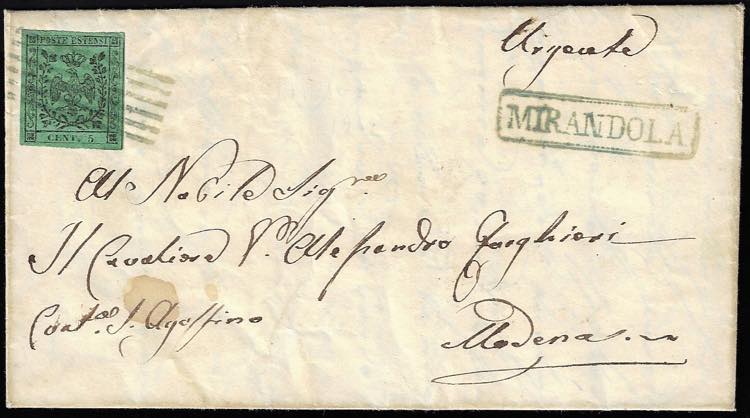 POSTE ESTENSI
CENT. 5
Urgente
MIRANDOLA
Al Nobile Sig.re
Il Cavaliere Alessandro Forghieri
Cont.a S. Agostino
Modena